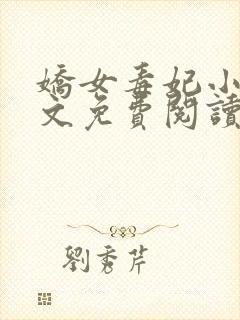 嬌女毒妃小
文免費閱讀
劉秀芹